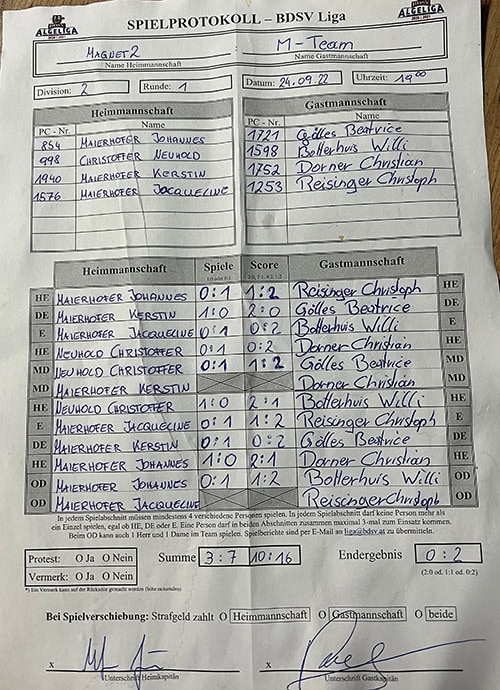 ALGELIGA SPIELPROTOKOLL – BDSV Liga ALGELIGA
MAGNET 2 : M-Team
Name Heimmannschaft Name Gastmannschaft
Division: 2 Runde: 1 Datum: 24.09.22 Uhrzeit: 19⁰⁰
Heimmannschaft Gastmannschaft
PC - Nr. Name PC - Nr. Name
854 MAIERHOFER JOHANNES 1721 Gölles Beatrice
998 CHRISTOFFER NEUHOLD 1598 Botterhuis Willi
1940 MAIERHOFER KERSTIN 1752 Dorner Christian
1576 MAIERHOFER JACQUELINE 1253 Reisinger Christoph
Heimmannschaft Spiele Score Gastmannschaft
HE MAIERHOFER JOHANNES 0:1 1:2 Reisinger Christoph HE
DE MAIERHOFER KERSTIN 1:0 2:0 Gölles Beatrice DE
E MAIERHOFER JACQUELINE 0:1 0:2 Botterhuis Willi E
HE NEUHOLD CHRISTOFFER 0:1 0:2 Dorner Christian HE
MD NEUHOLD CHRISTOFFER 0:1 1:2 Gölles Beatrice MD
MD MAIERHOFER KERSTIN Dorner Christian MD
HE NEUHOLD CHRISTOFFER 1:0 2:1 Botterhuis Willi HE
E MAIERHOFER JACQUELINE 0:1 1:2 Reisinger Christoph E
DE MAIERHOFER KERSTIN 0:1 0:2 Gölles Beatrice DE
HE MAIERHOFER JOHANNES 1:0 2:1 Dorner Christian HE
OD MAIERHOFER JOHANNES 0:1 1:2 Botterhuis Willi OD
OD MAIERHOFER JACQUELINE Reisinger Christoph OD
In jedem Spielabschnitt müssen mindestens 4 verschiedene Personen spielen. In jedem Spielabschnitt darf keine Person mehr als
ein Einzel spielen, egal ob HE, DE oder E. Eine Person darf in beiden Abschnitten zusammen maximal 3-mal zum Einsatz kommen.
Beim OD kann auch 1 Herr und 1 Dame im Team spielen. Spielberichte sind per E-Mail an liga@bdsv.at zu übermitteln.
Protest: O Ja O Nein Summe 3:7 10:16 Endergebnis 0:2
Vermerk: O Ja O Nein (2:0 od. 1:1 od. 0:2)
*) Ein Vermerk kann auf der Rückseite gemacht werden (bitte ankreuzen)
Bei Spielverschiebung: Strafgeld zahlt O Heimmannschaft O Gastmannschaft O beide
x x
Unterschrift Heimkapitän Unterschrift Gastkapitän